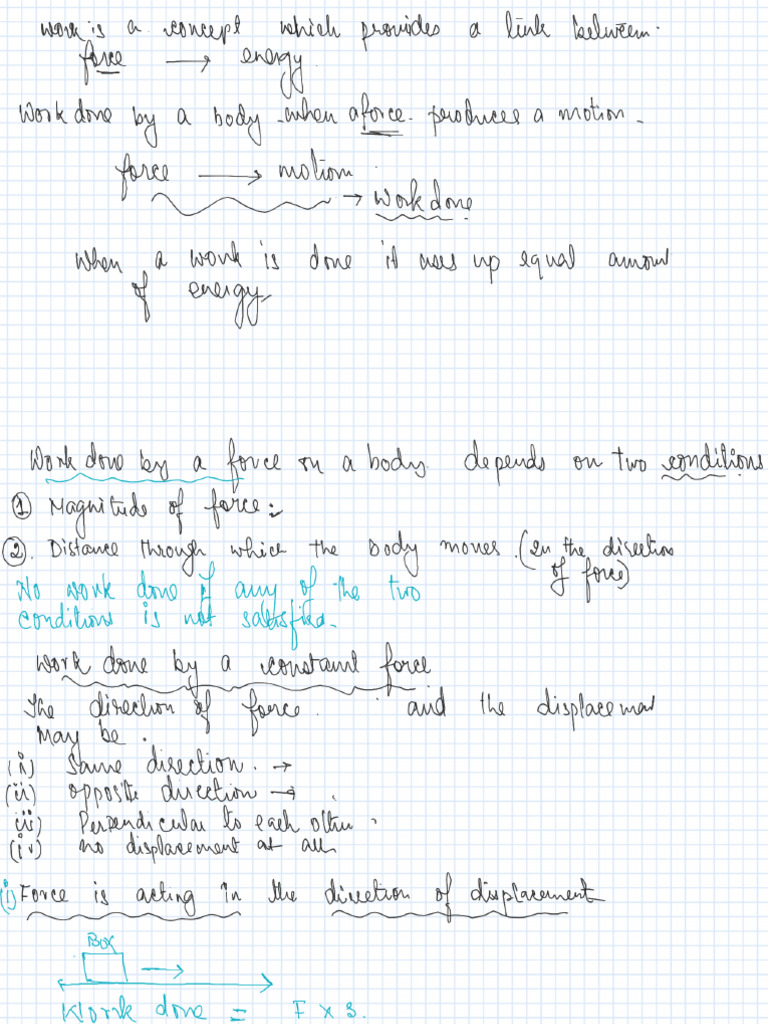 Work is a concept which provides a link between.
force → energy.
Work done by a body when a force produces a motion.
force → motion
→ Work done.
when a work is done it uses up equal amount
of energy.
Work done by a force on a body depends on two conditions
① Magnitude of force:
②. Distance through which the body moves. (In the direction
of force)
No work done if any of the two
conditions is not satisfied.
Work done by a constant force
The direction of force. and the displacement
may be.
(i) Same direction. →
(ii) opposite direction →
iii) Perpendicular to each other.
(iv) no displacement at all
(i) Force is acting in the direction of displacement
Box
Work done = F x s.